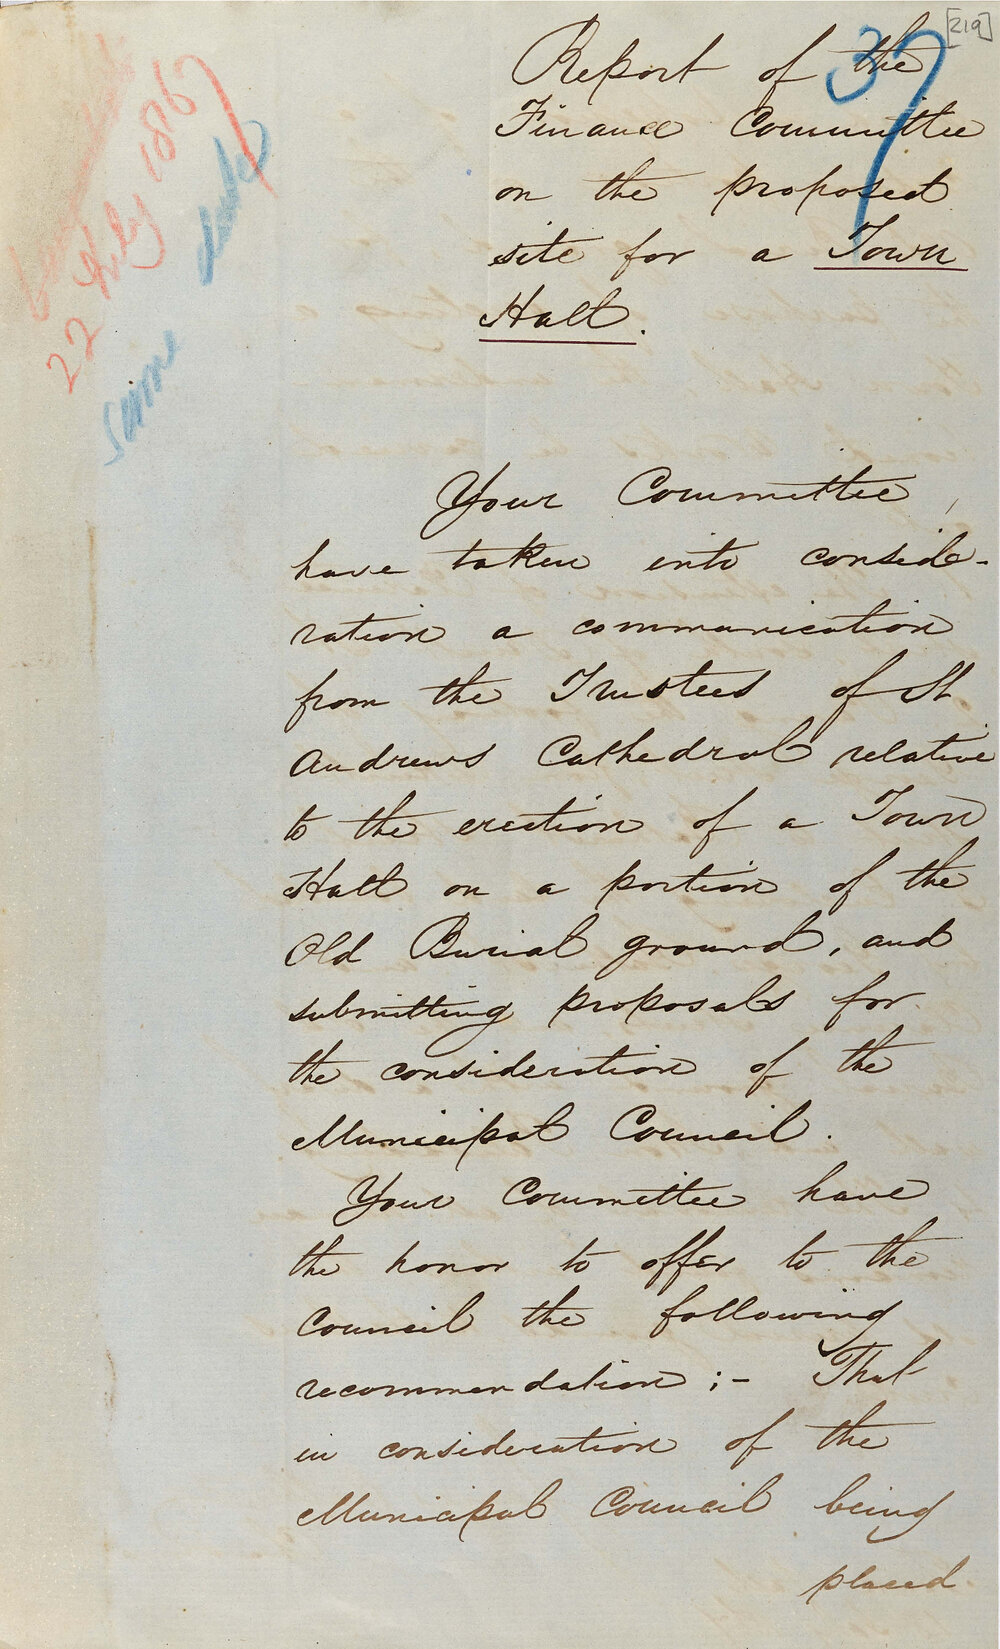 [219]
37
Report of the
Finance Committee
on the proposed
site for a Town
Hall.
22 July 1867
same date
Your Committee,
have taken into conside-
ration a communication
from the Trustees of St
Andrews Cathedral relative
to the erection of a Town
Hall on a portion of the
Old Burial ground, and
submitting proposals for
the consideration of the
Municipal Council.
Your Committee have
the honor to offer to the
Council the following
recommendation ;- That
in consideration of the
Municipal Council being
placed